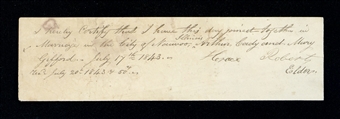 I hereby Certify that I have this day joined together in
Illinois
Marriage in the City of Nauvoo, Arthur Cady and Mary
Gifford. July 17th 1843.
Rec July 20th 1843 Elder